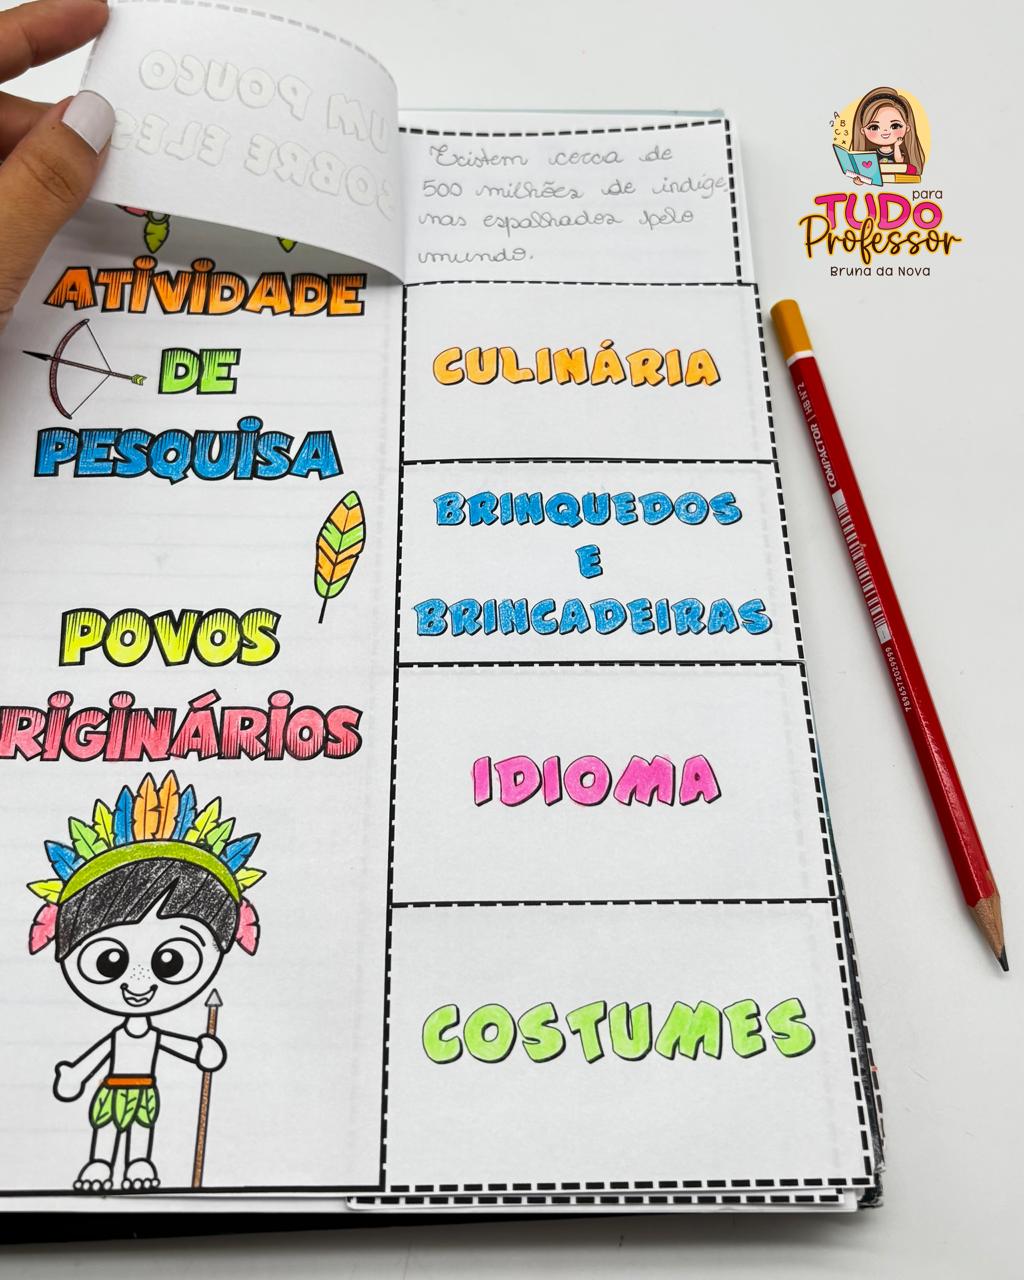 UM POUCO
SOBRE ELES
ATIVIDADE
DE
PESQUISA
POVOS
RIGINÁRIOS
Existem cerca de
500 milhões de indíge
nas espalhados pelo
mundo.
CULINÁRIA
BRINQUEDOS
E
BRINCADEIRAS
IDIOMA
COSTUMES
para
TUDO
Professor
Bruna da Nova
COMPACTOR | HB Nº2
7896572029999